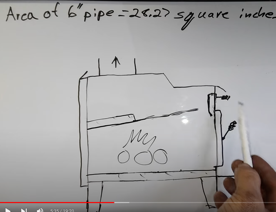 Area of 6" pipe = 28.27 square inches